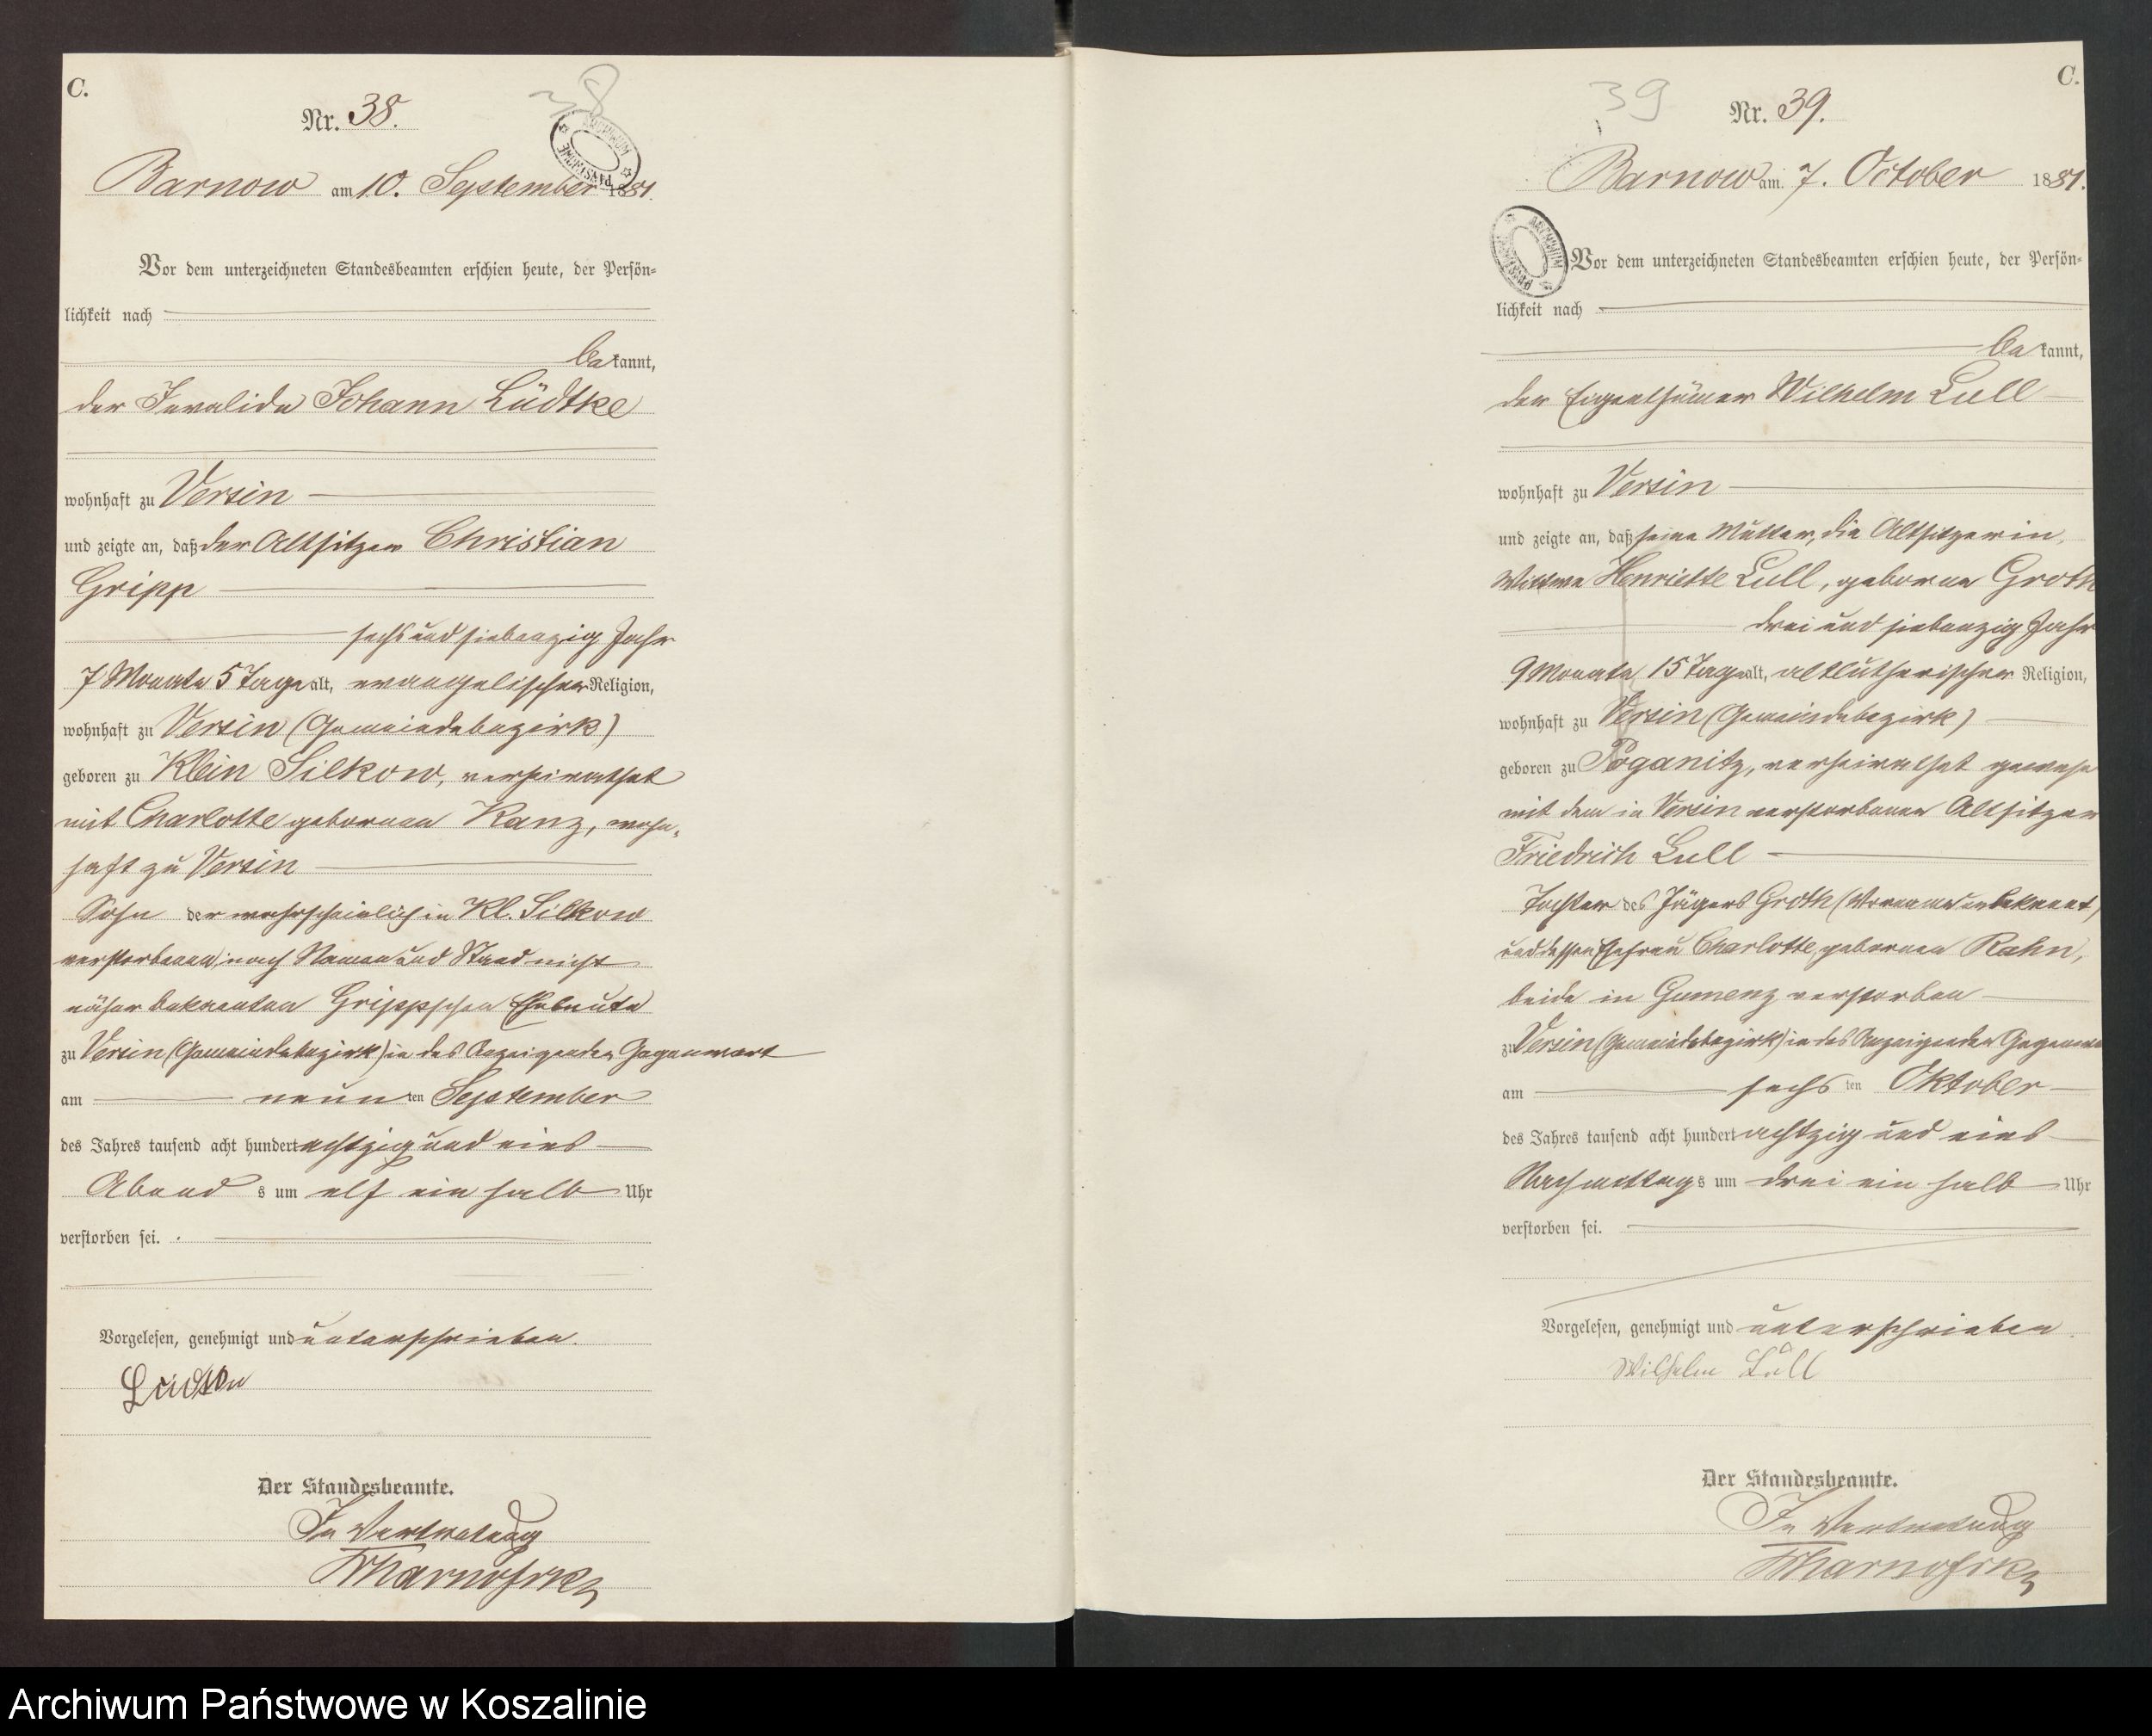 C.
38
Nr. 38.
ARCHIWUM PAŃSTWOWE
Barnow am 10. September 1881.
Vor dem unterzeichneten Standesbeamten erschien heute, der Persön-
lichkeit nach
bekannt,
der Invalide Johann Lüdtke
wohnhaft zu Versin
und zeigte an, daß der Altsitzer Christian
Gripp
sechs und siebenzig Jahr
7 Monate 5 Tage alt, evangelischer Religion,
wohnhaft zu Versin (Gemeindebezirk)
geboren zu Klein Silkow, verheirathet
mit Charlotte geborenen Kanz, wohn-
haft zu Versin
Sohn der wahrscheinlich in Kl. Silkow
verstorbenen, nach Namen und Stand nicht
näher bekannten Grippschen Eheleute
zu Versin (Gemeindebezirk) in des Anzeigenden Gegenwart
am neunten September
des Jahres tausend acht hundert achtzig und eins
Abends um elf ein halb Uhr
verstorben sei.
Vorgelesen, genehmigt und unterschrieben.
Der Standesbeamte.
In Vertretung
C.
39
Nr. 39.
ARCHIWUM PAŃSTWOWE
Barnow am 7. October 1881.
Vor dem unterzeichneten Standesbeamten erschien heute, der Persön-
lichkeit nach
bekannt,
der Eigenthümer Wilhelm Lull
wohnhaft zu Versin
und zeigte an, daß seine Mutter, die Altsitzerin,
Wittwe Henriette Lull, geborne Groth
drei und siebenzig Jahr
9 Monate 15 Tage alt, altlutherischer Religion,
wohnhaft zu Versin (Gemeindebezirk)
geboren zu Poganitz, verheirathet gewesen
mit dem in Versin verstorbenen Altsitzer
Friedrich Lull
Tochter des Jägers Groth (Vorname unbekannt)
und dessen Ehefrau Charlotte, geborenen Rahn,
beide in Gumenz verstorben
zu Versin (Gemeindebezirk) in des Anzeigenden Gegenwart
am sechsten Oktober
des Jahres tausend acht hundert achtzig und eins
Nachmittags um drei ein halb Uhr
verstorben sei.
Vorgelesen, genehmigt und unterschrieben.
Wilhelm Lull
Der Standesbeamte.
In Vertretung
Archiwum Państwowe w Koszalinie